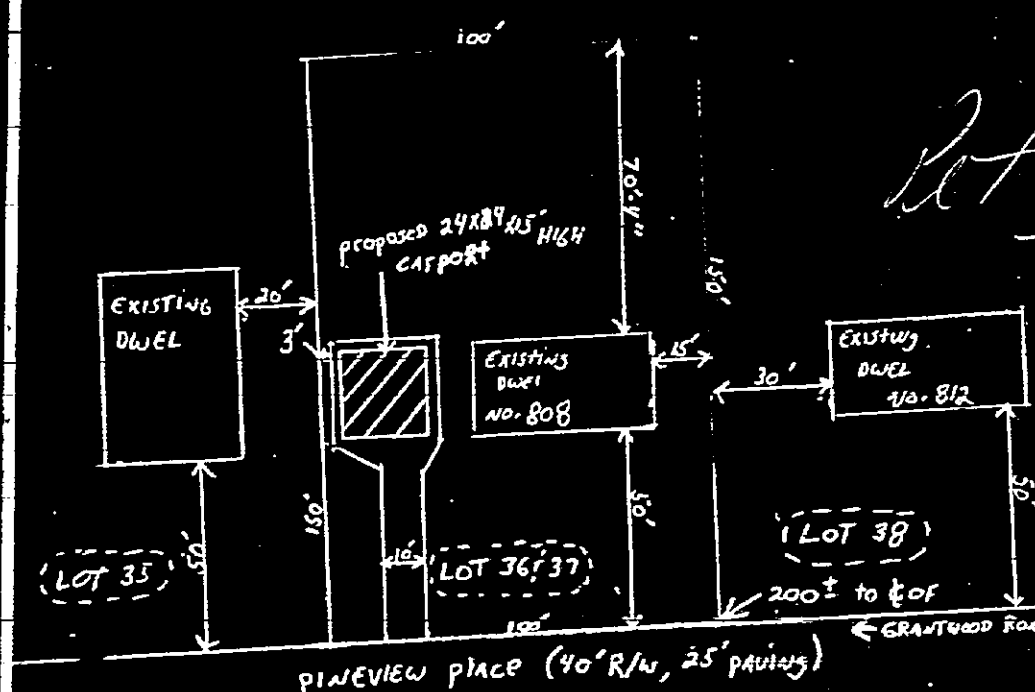 100'
70'.4"
proposed 24x24x15' HIGH
CARPORT
150'
EXISTING
DWEL
20'
3'
EXISTING
DWEL
NO. 808
15'
30'
EXISTING
DWEL
NO. 812
50'
150'
10'
50'
50'
LOT 35
LOT 36 & 37
LOT 38
200± to ℄ OF
100'
← GRANTWOOD ROA
PINEVIEW PLACE (40' R/W, 25' PAVING)